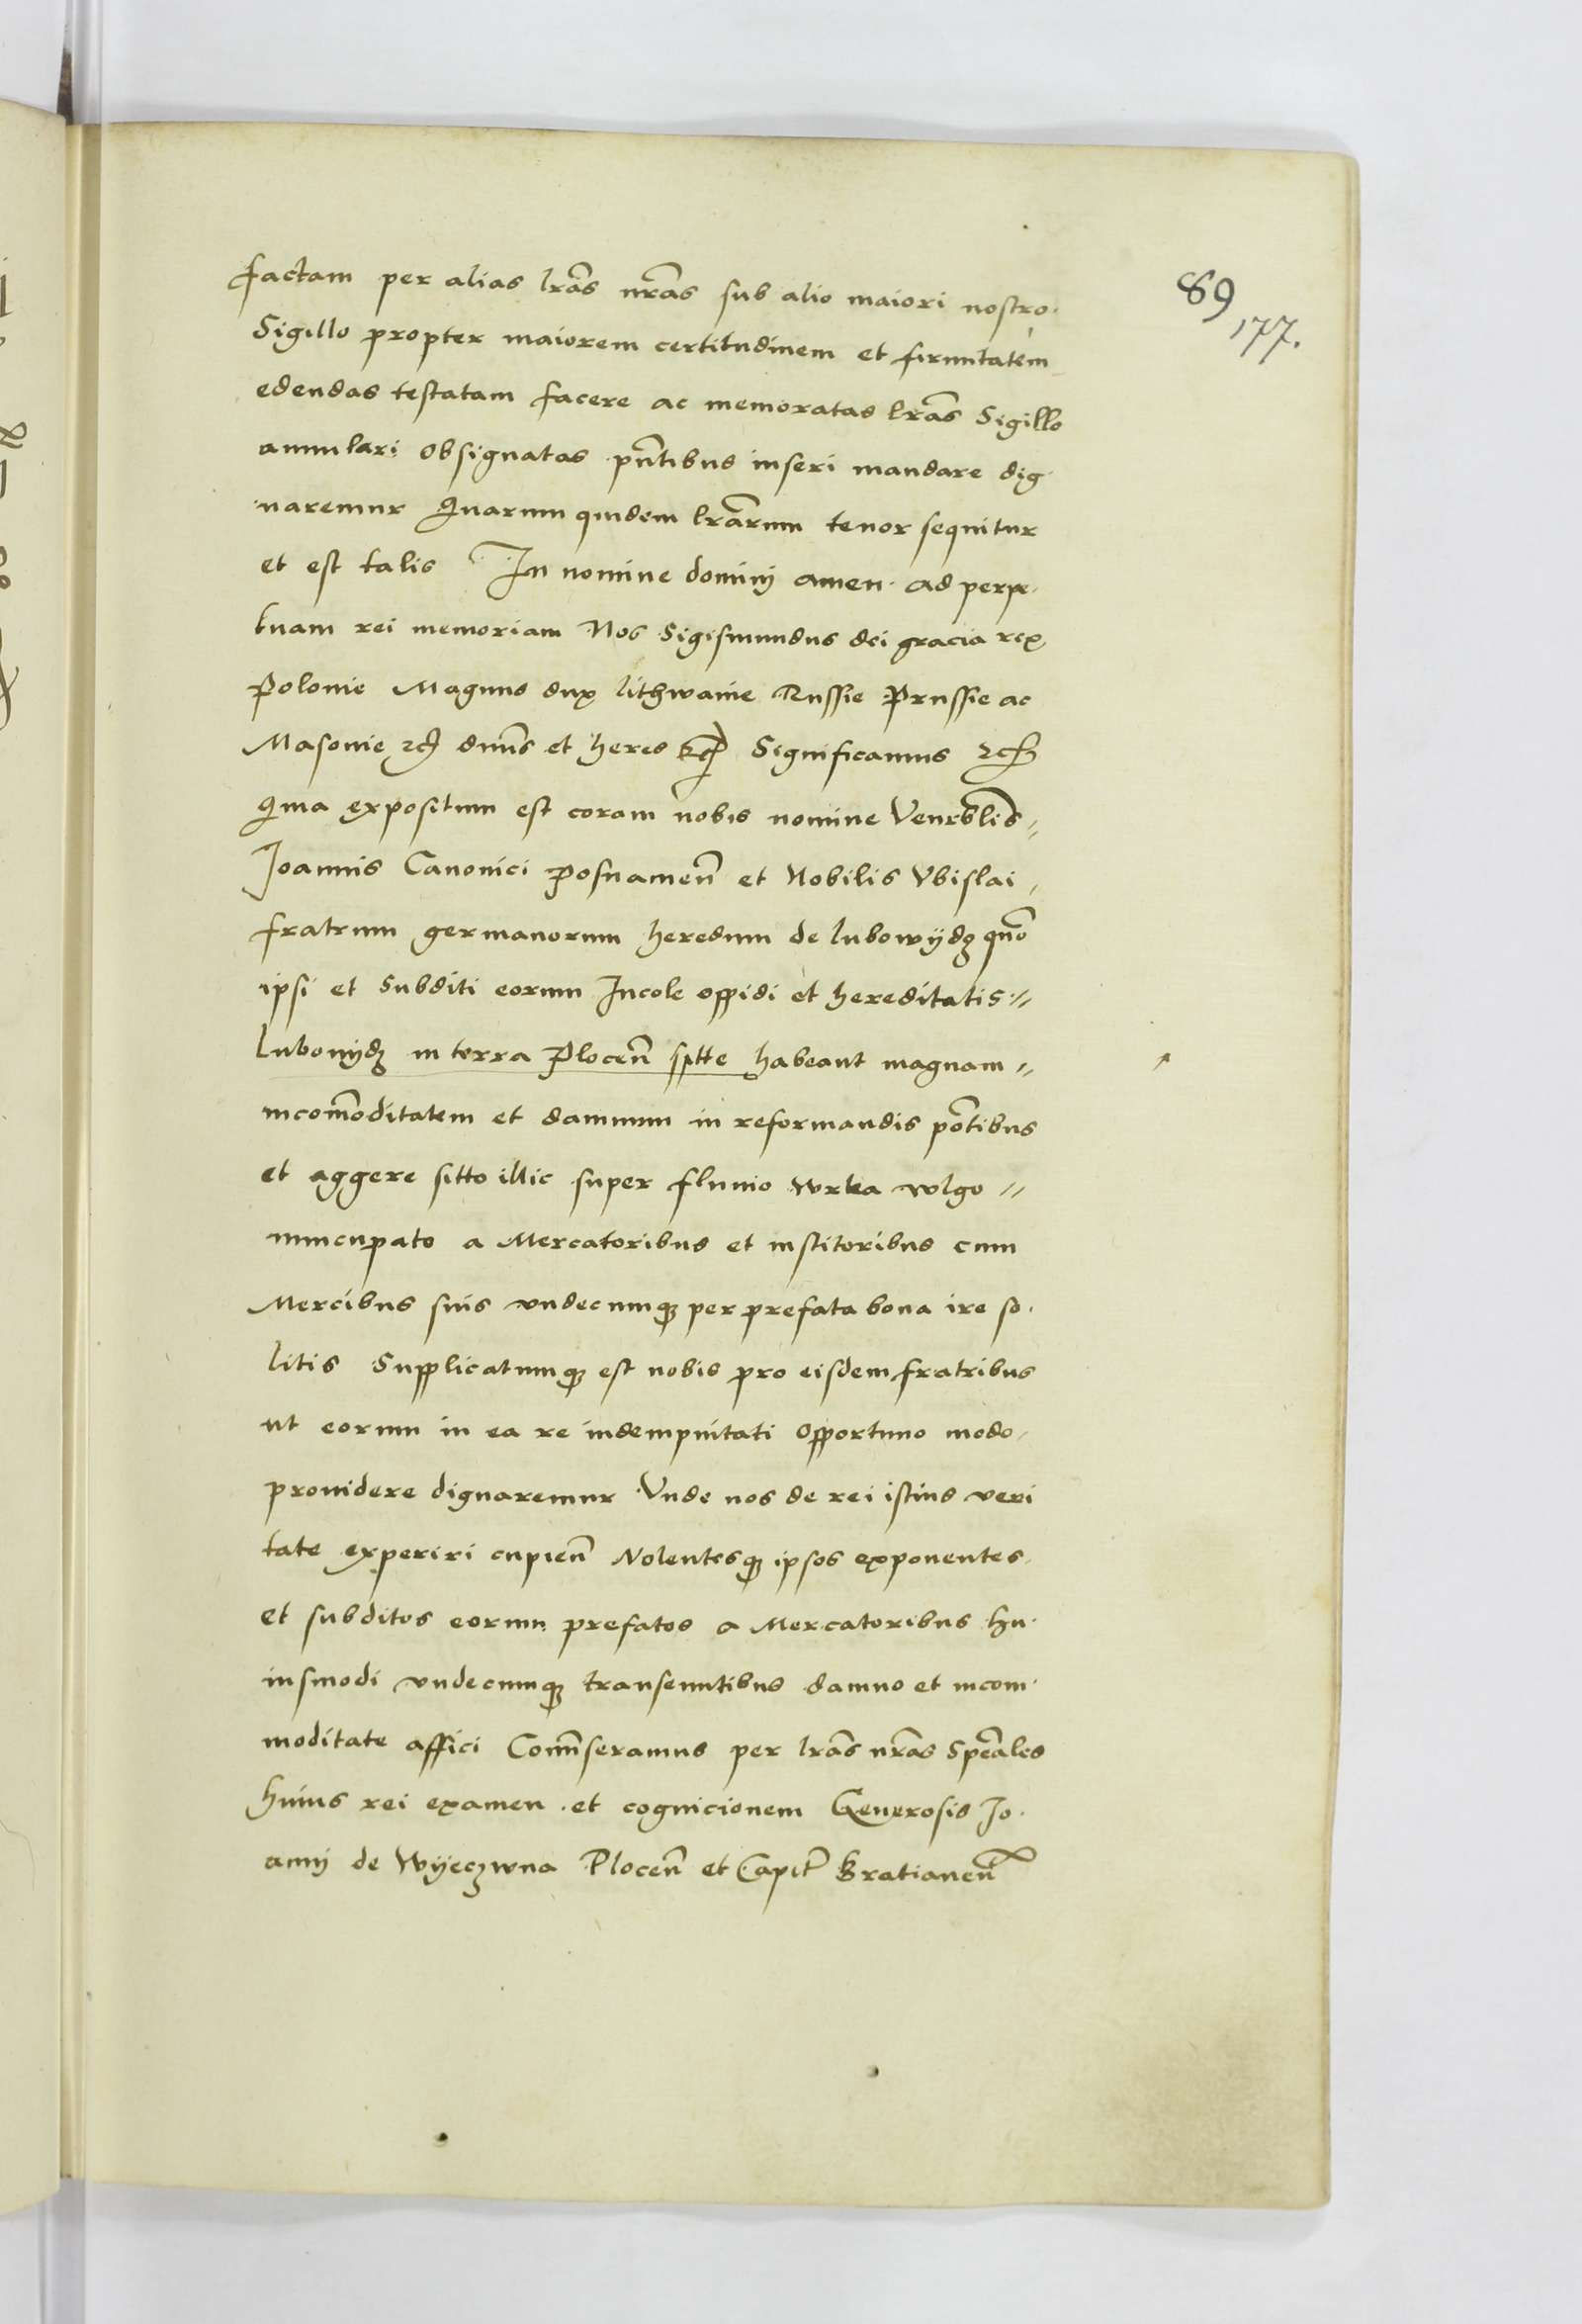 factam per alias lrãs nrãs sub alio maiori nostro
89
Sigillo propter maiorem certitudinem et firmitatem
177.
edendas testatam facere ac memoratas lrãs Sigillo
annulari obsignatas pñtibus inseri mandare dig
naremur Quarum quidem lrãrum tenor sequitur
et est talis In nomine dominj amen ad perpe
tuam rei memoriam Nos Sigismundus dei gracia rex
Polonie Magnus dux lithwanie Russie Prussie ac
Masonie dnũs et heres Significamus
Quia expositum est coram nobis nomine Venrblis
Joannis Canonici Posnamen̄ et Nobilis Vbislai
fratrum germanorum heredum de lubowÿdz quo
ipsi et Subditi eorum Incole oppidi et hereditatis
Lubowÿdz in terra Plocen̄ habeant magnam
incom̃oditatem et damnum in reformandis põtibus
et aggere sitto illic super fluuio wrka wlgo
nuncupato a Mercatoribus et institoribus cum
Mercibus suis vndecumqz per prefata bona ire so
litis Supplicatumqz est nobis pro eisdem fratribus
ut eorum in ea re indempnitati opportuno modo
prouidere dignaremur Vnde nos de rei istius veri
tate experiri cupien̄ Nolentesqz ipsos exponentes
et subditos eorum prefatos a Mercatoribus hu
iusmodi vndecumqz transeuntibus damno et incom
moditate affici Com̃iseramus per lrãs nrãs Speãles
huius rei examen et cognicionem Generosis Jo
annj de Wÿeczwna Plocen̄ et Capit̃ Bratianen̄